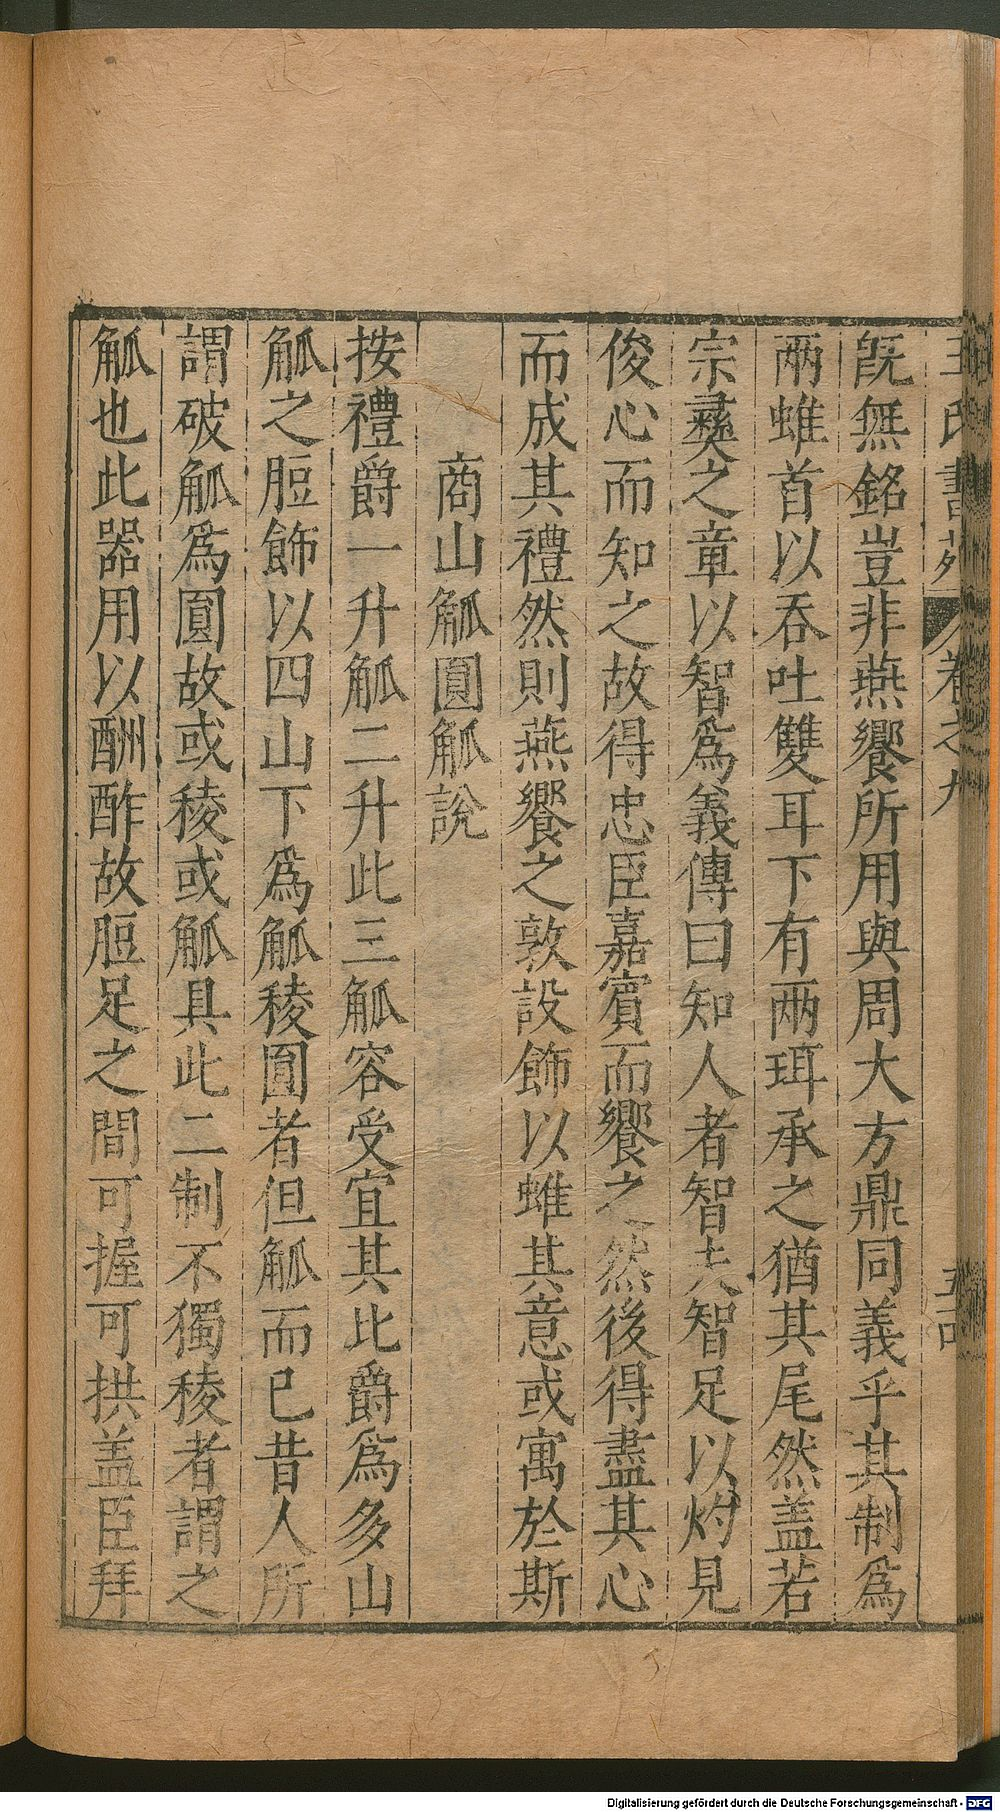 王氏書苑 卷之九 五
旣無銘豈非燕饗所用與周大方鼎同義乎其制爲
兩蜼首以吞吐雙耳下有兩珥承之猶其尾然盖若
宗彞之章以智爲義傳曰知人者智夫智足以灼見
俊心而知之故得忠臣嘉賓而饗之然後得盡其心
而成其禮然則燕饗之敦設飾以蜼其意或寓於斯
商山觚圓觚說
按禮爵一升觚二升此三觚容受宜其比爵爲多山
觚之脰飾以四山下爲觚稜圓者但觚而已昔人所
謂破觚爲圓故或稜或觚具此二制不獨稜者謂之
觚也此器用以酬酢故脰足之間可握可拱盖臣拜
Digitalisierung gefördert durch die Deutsche Forschungsgemeinschaft - DFG